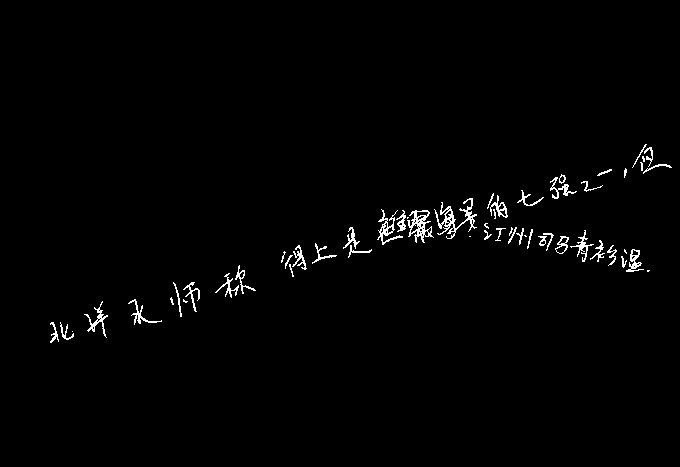 北洋水师称得上是世界海军的七强之一，但
江州司马青衫湿.